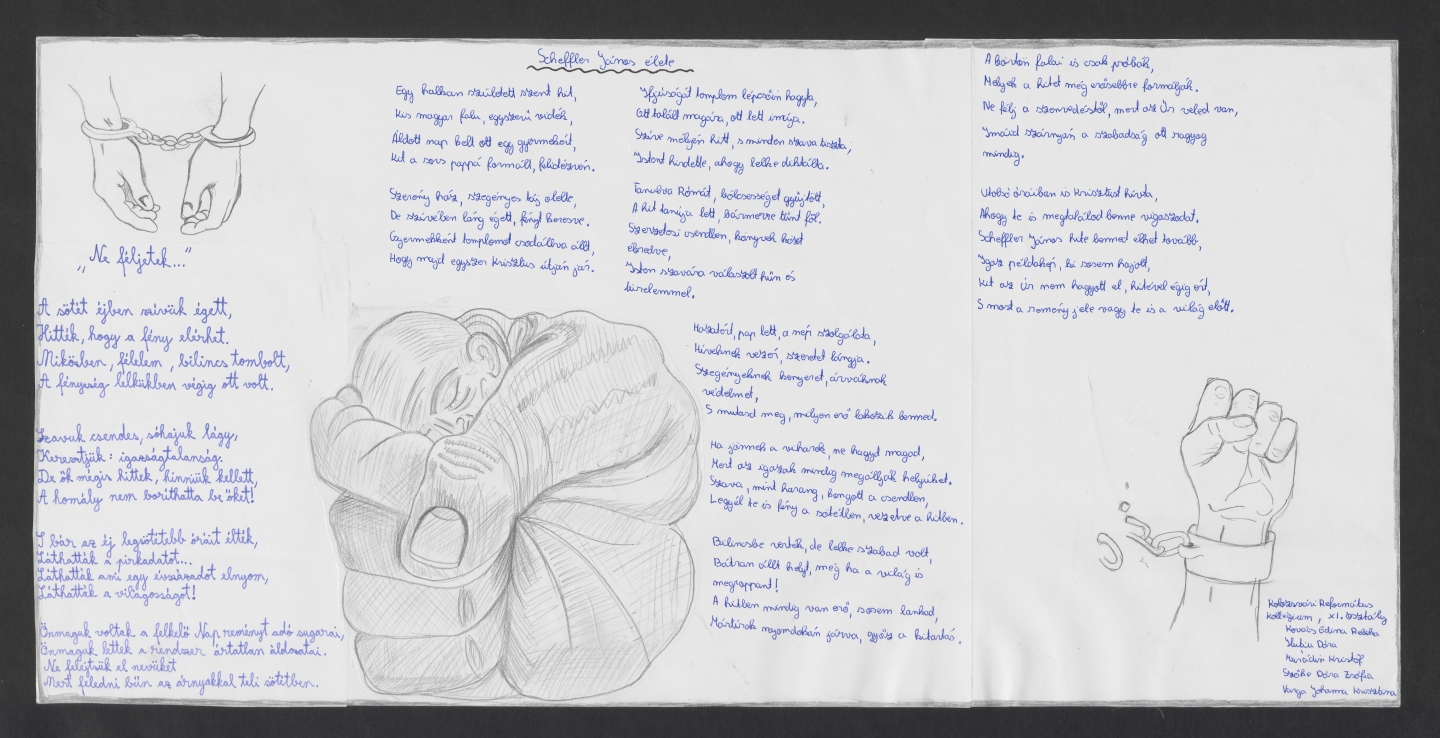 „Ne féljetek..."
A sötét éjben szívük égett,
Hitték, hogy a fény elérhet.
Miközben, félelem, bilincs tombolt,
A fényesség lelkükben végig ott volt.
Szavuk csendes, sóhajuk lágy,
Keresztjük: igazságtalanság.
De ők mégis hittek, hinniük kellett,
A homály nem boríthatta be őket!
S bár az éj legsötétebb óráit élték,
Láthatták a pirkadatot...
Láthatták ami egy évszázadot elnyom,
Láthatták a világosságot!
Önmaguk voltak a felkelő Nap reményt adó sugarai,
Önmaguk lettek a rendszer ártatlan áldozatai.
Ne felejtsük el nevüket
Mert feledni bűn az árnyakkal teli sötétben.
Scheffler János élete
Egy halkan született szent hit,
Kis magyar falu, egyszerű vidék,
Áldott nap kelt ott egy gyermekért,
Kit a sors pappá formált, felidézvén.
Szerény ház, szegényes táj ölelte,
De szívében láng égett, fényt keresve.
Gyermekként templomot csodálva állt,
Hogy majd egyszer Krisztus útján jár.
Ifjúságát templom lépcsőin hagyta,
Ott talált magára, ott lett imája.
Szíve mélyén hitt, s minden szava tiszta,
Istent hirdette, ahogy lelke diktálta.
Tanulva Rómát, bölcsességet gyűjtött,
A hit tanúja lett, bármerre tűnt föl.
Szerzetesi csendben, könyvek közt
ébredve,
Isten szavára válaszolt hűn és
türelemmel.
Hazatért, pap lett, a nép szolgálata,
Híveknek vezér, szeretet lángja.
Szegényeknek kenyeret, árváknak
védelmet,
S mutasd meg, milyen erő lakozik benned.
Ha jönnek a viharok, ne hagyd magad,
Mert az igazak mindig megállják helyüket.
Szava, mint harang, kongott a csendben,
Legyél te is fény a sötétben, vezetve a hitben.
Bilincsbe verték, de lelke szabad volt,
Bátran állt helyt, még ha a világ is
megroppant!
A hitben mindig van erő, sosem lankad,
Mártírok nyomdokán járva, győz a kitartás.
A börtön falai is csak próbák,
Melyek a hitet még erősebbre formálják.
Ne félj a szenvedéstől, mert az Úr veled van,
Imáid szárnyán a szabadság ott ragyog
mindig.
Utolsó óráiban is Krisztust hívta,
Ahogy te is megtalálod benne vigaszodat.
Scheffler János hite benned élhet tovább,
Igaz példakép, ki sosem hajolt,
Kit az Úr nem hagyott el, hitével égig ért,
S most a remény jele vagy te is a világ előtt.
Kolozsvári Református
Kollégium, XI. osztály
Kovács Edina Rebeka
Dóra
Kristóf
Szőke Dóra Zsófia
Varga Johanna Krisztina